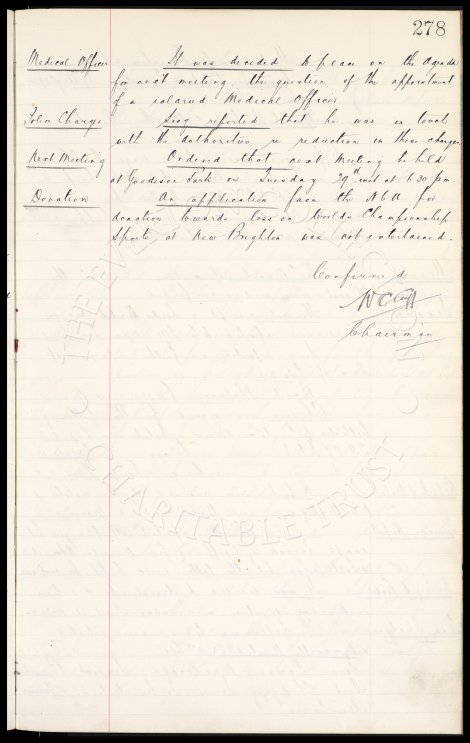 278
Medical Officer It was decided to place on the Agenda
for next meeting the question of the appointment
of a salaried Medical Officer
Police Charges Secy reported that he was in touch
with the authorities re reduction in those charges
Next Meeting Ordered that next Meeting be held
at Goodison Park on Tuesday 29th inst at 6.30 pm
Donation An application from the for
donation towards loss on Worlds Championship
Sports at New Brighton was not entertained.
Confirmed
W C Cuff
Chairman
THE EVERTON COLLECTION
CHARITABLE TRUST